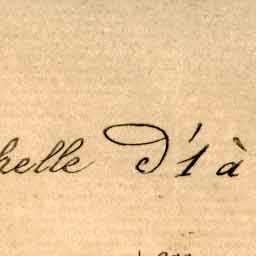 helle d'1 à